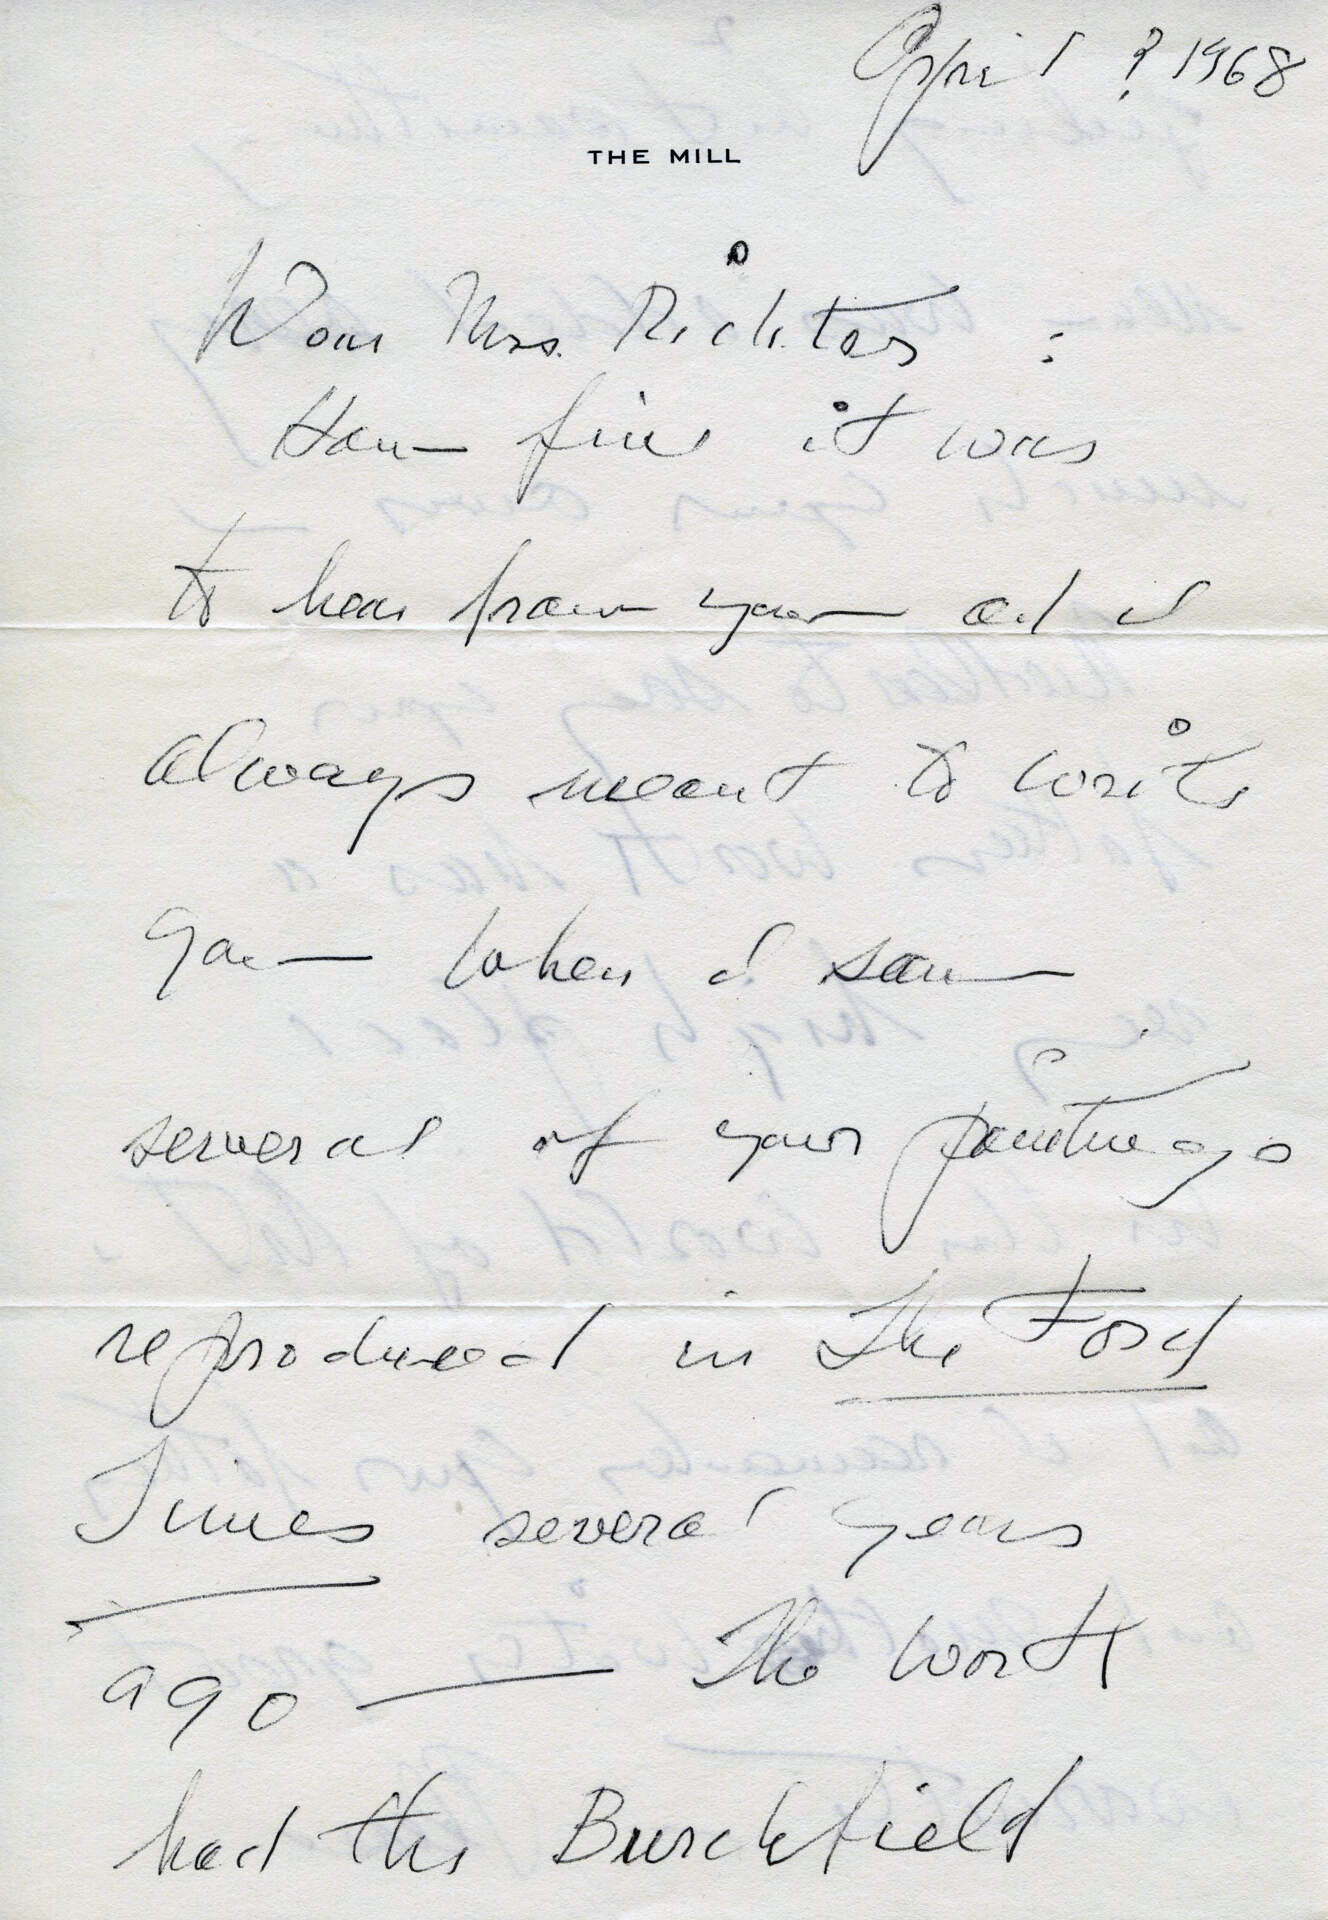 April ? 1968
THE MILL
Dear Mrs. Richter :
How fine it was
to hear from you and I
always meant to write
you when I saw
several of your paintings
reproduced in The Ford
Times several years
ago — The work
had the Burchfield